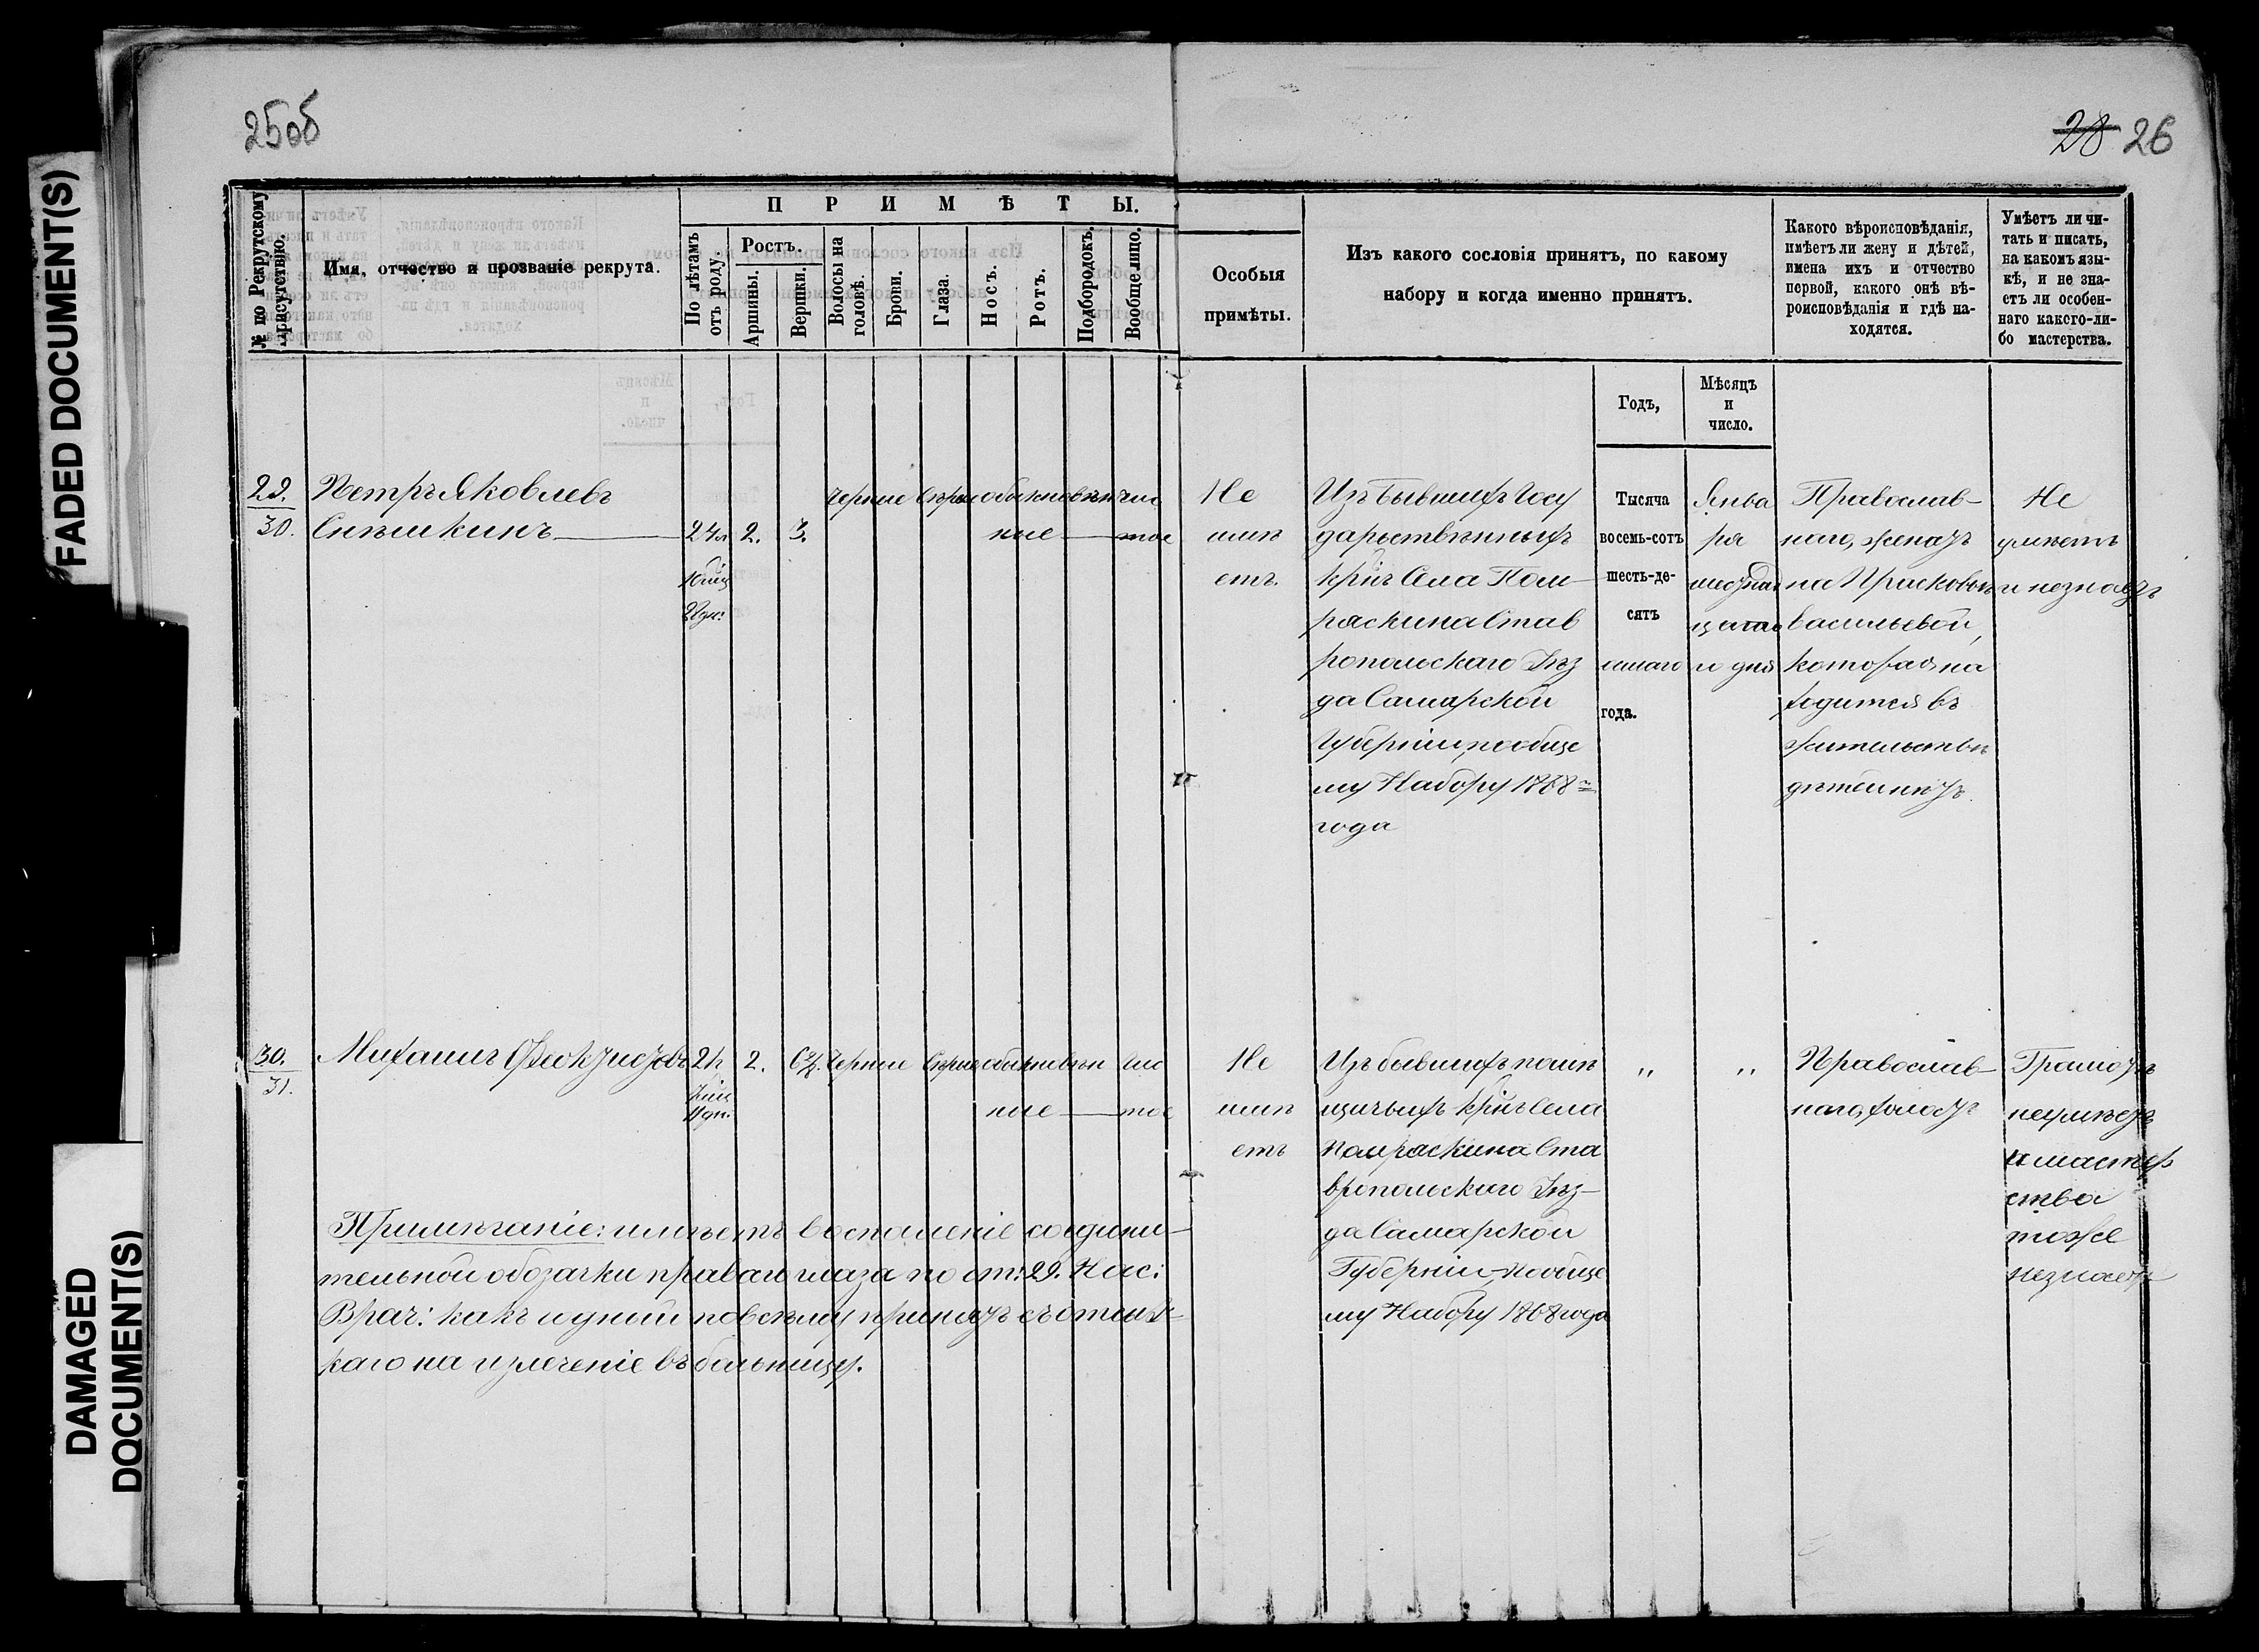 25об
28 26
FADED DOCUMENT(S)
DAMAGED
DOCUMENT(S)
№ по Рекрутскому
присутствію.
Имя, отчество и прозваніе рекрута.
ПРИМѢТЫ.
По лѣтамъ
отъ роду.
Ростъ.
Аршины.
Вершки.
Волосы на
головѣ.
Брови.
Глаза.
Носъ.
Ротъ.
Подбородокъ.
Вообще лицо.
Особыя
примѣты.
Изъ какого сословія принятъ, по какому
набору и когда именно принятъ.
Какого вѣроисповѣданія,
имѣетъ ли жену и дѣтей,
имена ихъ и отчество
первой, какого онѣ вѣ-
роисповѣданія и гдѣ на-
ходятся.
Умѣетъ ли чи-
тать и писать,
на какомъ язы-
кѣ, и не зна-
етъ ли особен-
наго какого-ли-
бо мастерства.
Годъ,
Мѣсяцъ
и
число.
29.
30.
Петръ Яковлевъ
Синѣшкинъ
24
2.
3.
черные сѣрые обыкновен чис
ные тое
Не
имѣ
етъ.
Изъ бывшихъ Госу
дарственныхъ
крнъ Села Пом
ряскина Став
ропольскаго Уѣз
да Самарской
Губерніи, по обще
му Набору 1868
года
Тысяча
восемь-сотъ
шесть-де-
сятъ
года.
Янва
ря
и дня
Православ-
наго, женатъ
на Прасковьѣ
Васильевой,
которая на
ходится въ
жительствѣ
дѣтей нѣтъ.
Не
умѣетъ
и незнаетъ
30.
31.
Михаилъ Феоктистовъ
2.
Черные Сѣрые обыкновен чис
ные тое
Не
имѣ
етъ
Изъ бывшихъ помѣ
щичьихъ крнъ Села
Помряскина Ста
вропольскаго Уѣз-
да Самарской
Губерніи, по обще
му Набору 1868 года
,, ,,
Православ-
наго, холостъ
Грамотѣ
неумѣетъ
и мастер
ства
тоже
незнаетъ
Примѣчаніе: имѣетъ воспаленіе соедини-
тельной оболочки праваго глаза по ст: 29. Нас:
Врач: какъ годный повсѣму принятъ съ отмѣт-
кою на излеченіе въ больницу.